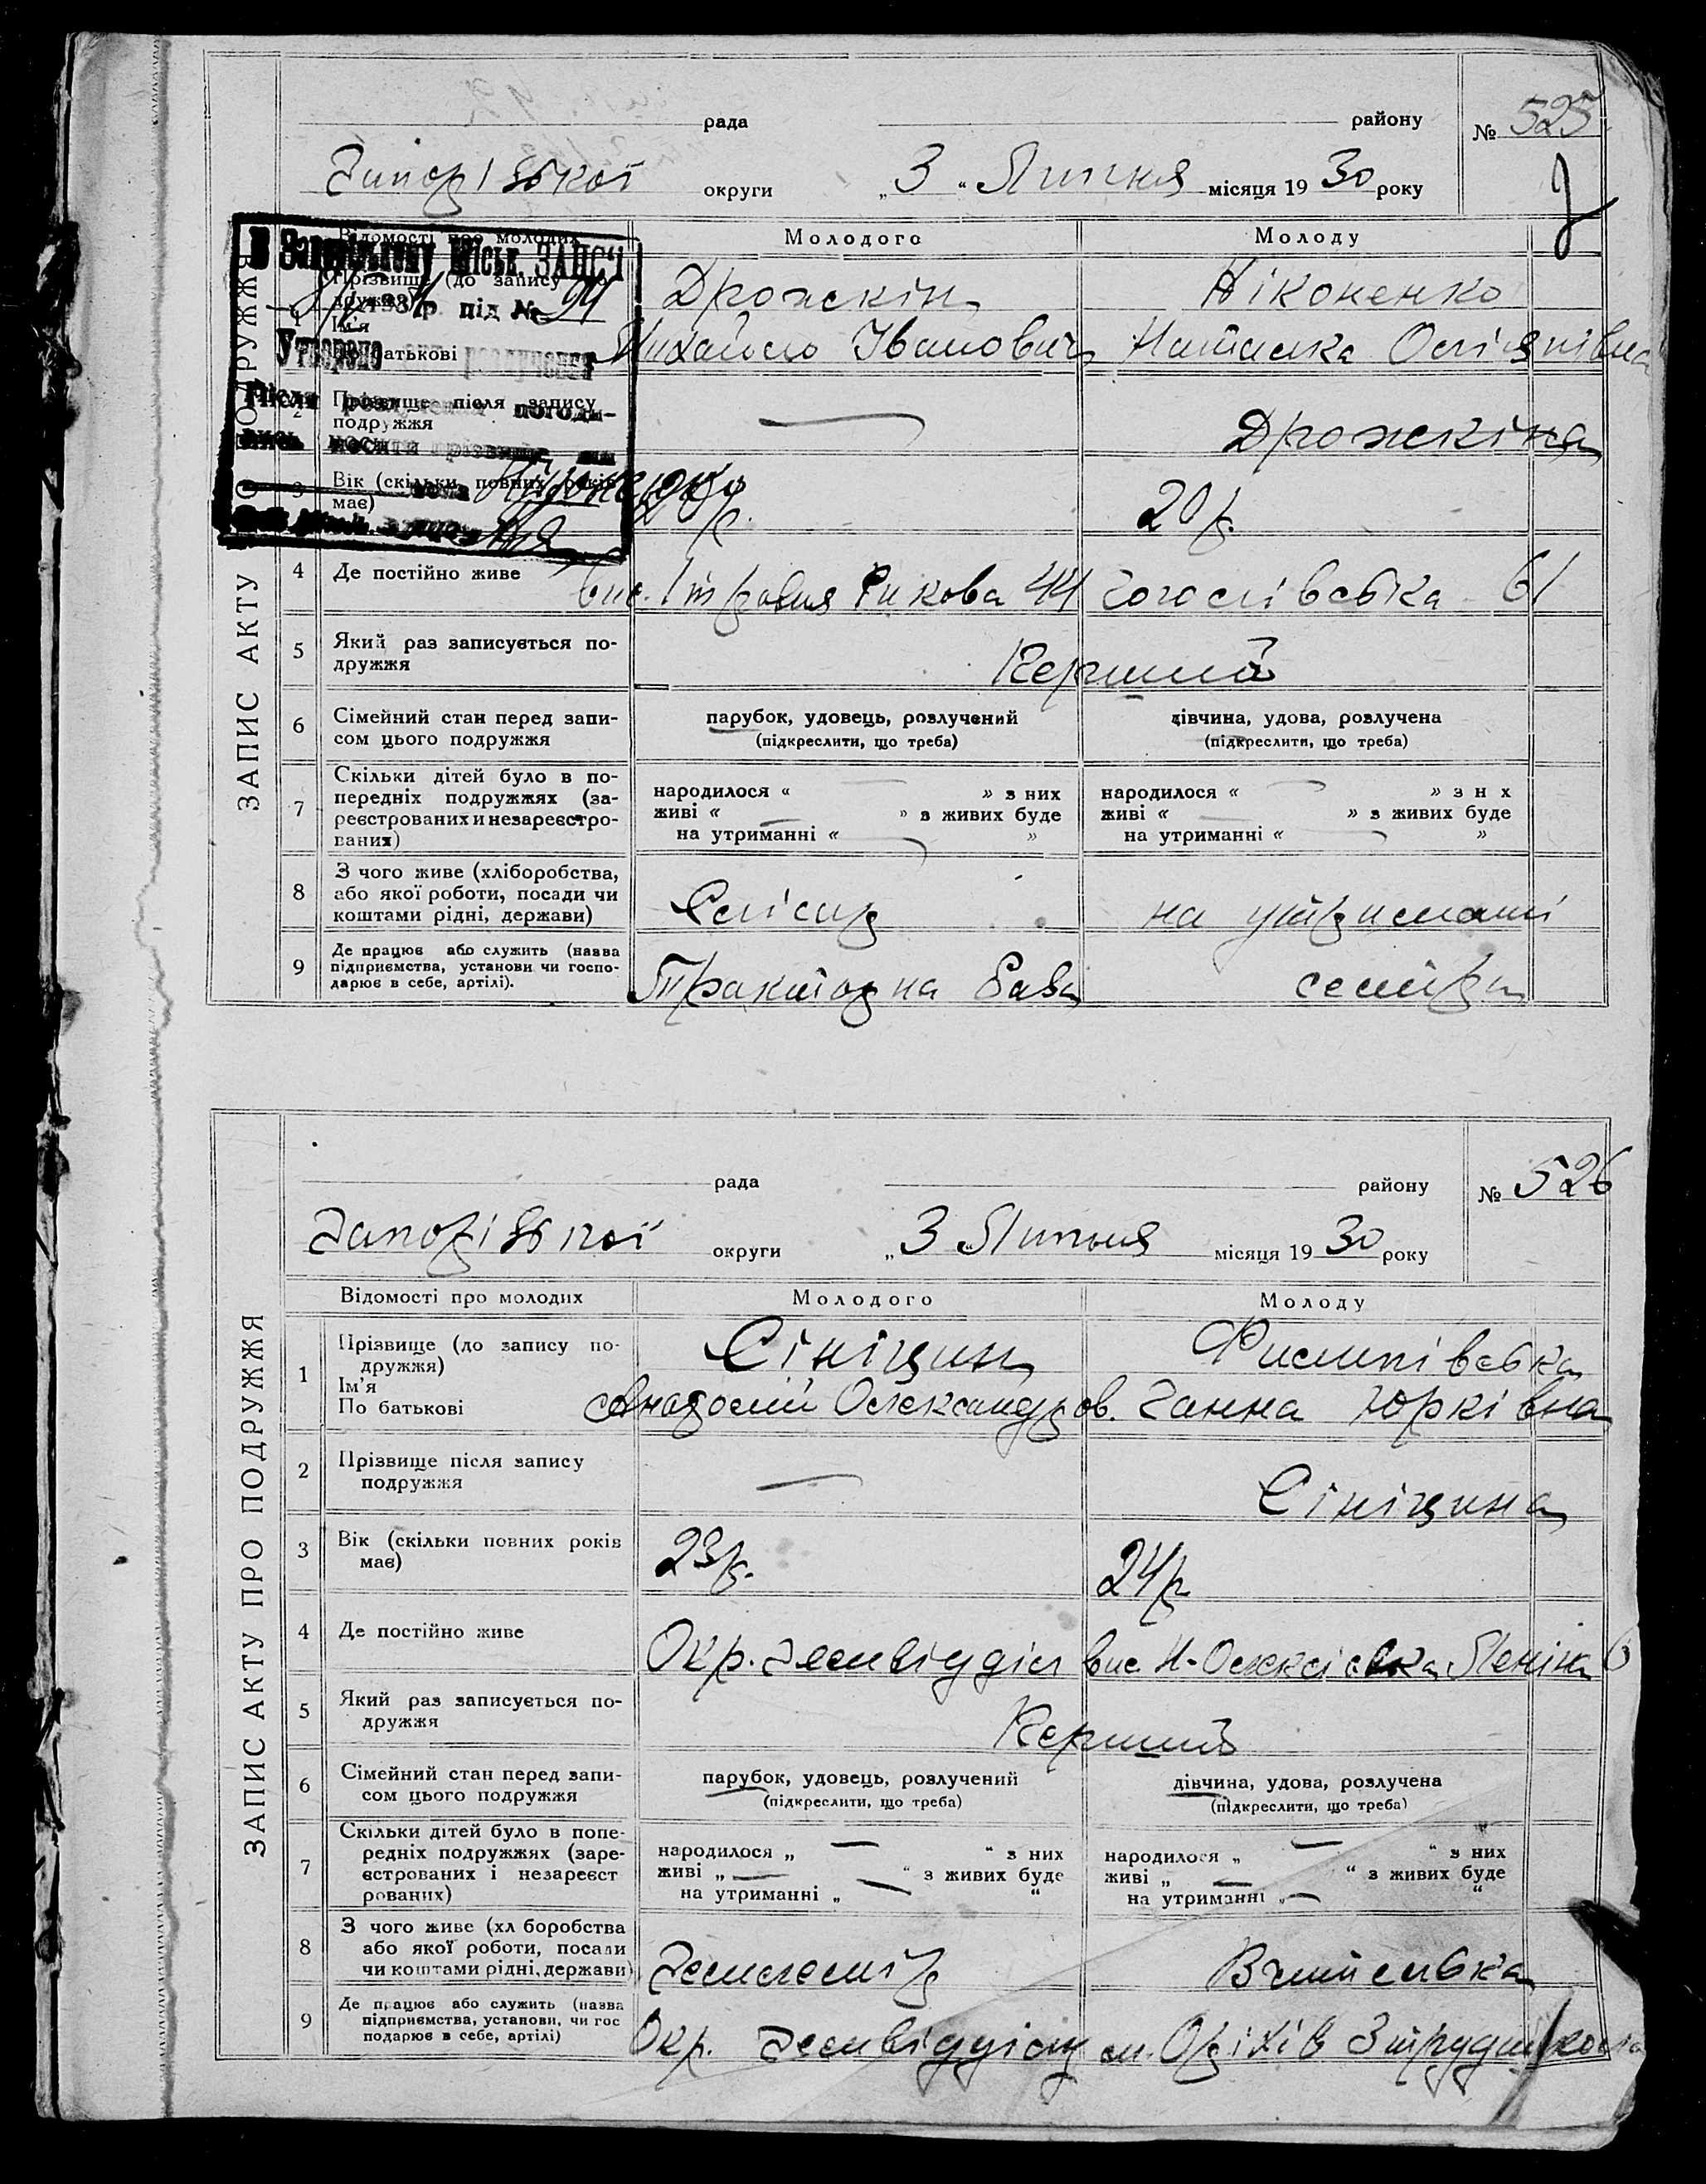 рада району № 525
Запорізької округи „3“ Липня місяця 1930 року
ЗАПИС АКТУ ПРО ПОДРУЖЖЯ
Відомості про молодих Молодого Молоду
В Запорізькому Міськ. ЗАГСʼі
під № 24
Утворено акт розлучення
Після розлучення погоди-
лись носити прізвище він
вона Ніконенко
1 Прізвище (до запису подружжя) Дрожкін Ніконенко
Ім'я
По батькові Михайло Іванович Наталка Омелянівна
2 Прізвище після запису
подружжя — Дрожкіна
3 Вік (скільки повних років
має) 20 р.
4 Де постійно живе вис. 1 травня Рикова 44 Гоголівська 61
5 Який раз записується по-
дружжя Перший
6 Сімейний стан перед запи- парубок, удовець, розлучений дівчина, удова, розлучена
сом цього подружжя (підкреслити, що треба) (підкреслити, що треба)
7 Скільки дітей було в по-
передніх подружжях (за- народилося « — » з них народилося « — » з н х
реєстрованих и незареєстро- живі « — » з живих буде живі « — » з живих буде
ваних) на утриманні « — » на утриманні « — »
8 З чого живе (хліборобства,
або якої роботи, посади чи
коштами рідні, держави) Слісар на утриманні
9 Де працює або служить (назва
підприємства, установи чи госпо-
дарює в себе, артілі). Тракторна База сестри
рада району № 526
Запорізької округи „3“ Липня місяця 1930 року
ЗАПИС АКТУ ПРО ПОДРУЖЖЯ
Відомості про молодих Молодого Молоду
1 Прізвище (до запису по-
дружжя) Сініцин Филипівська
Ім'я
По батькові Анатолій Олександров. Ганна Юрківна
2 Прізвище після запису
подружжя — Сініцина
3 Вік (скільки повних років
має) 23 р. 24 р.
4 Де постійно живе Окр. земвідділ вис. Н-Олексіевка Леніна 6
5 Який раз записується по-
дружжя Перший
6 Сімейний стан перед запи- парубок, удовець, розлучений дівчина, удова, розлучена
сом цього подружжя (підкреслити, що треба) (підкреслити, що треба)
7 Скільки дітей було в попе-
редніх подружжях (заре- народилося „ — “ з них народилося „ — “ з них
єстрованих і незареєст живі „ — “ з живих буде живі „ — “ з живих буде
рованих) на утриманні „ — “ на утриманні „ — “
8 З чого живе (хл боробства
або якої роботи, посади
чи коштами рідні, держави) Землемір Вчителька
9 Де працює або служить (назва
підприємства, установи, чи гос
подарює в себе, артілі) Окр. земвідділ м. Оріхів 3 трудшкола